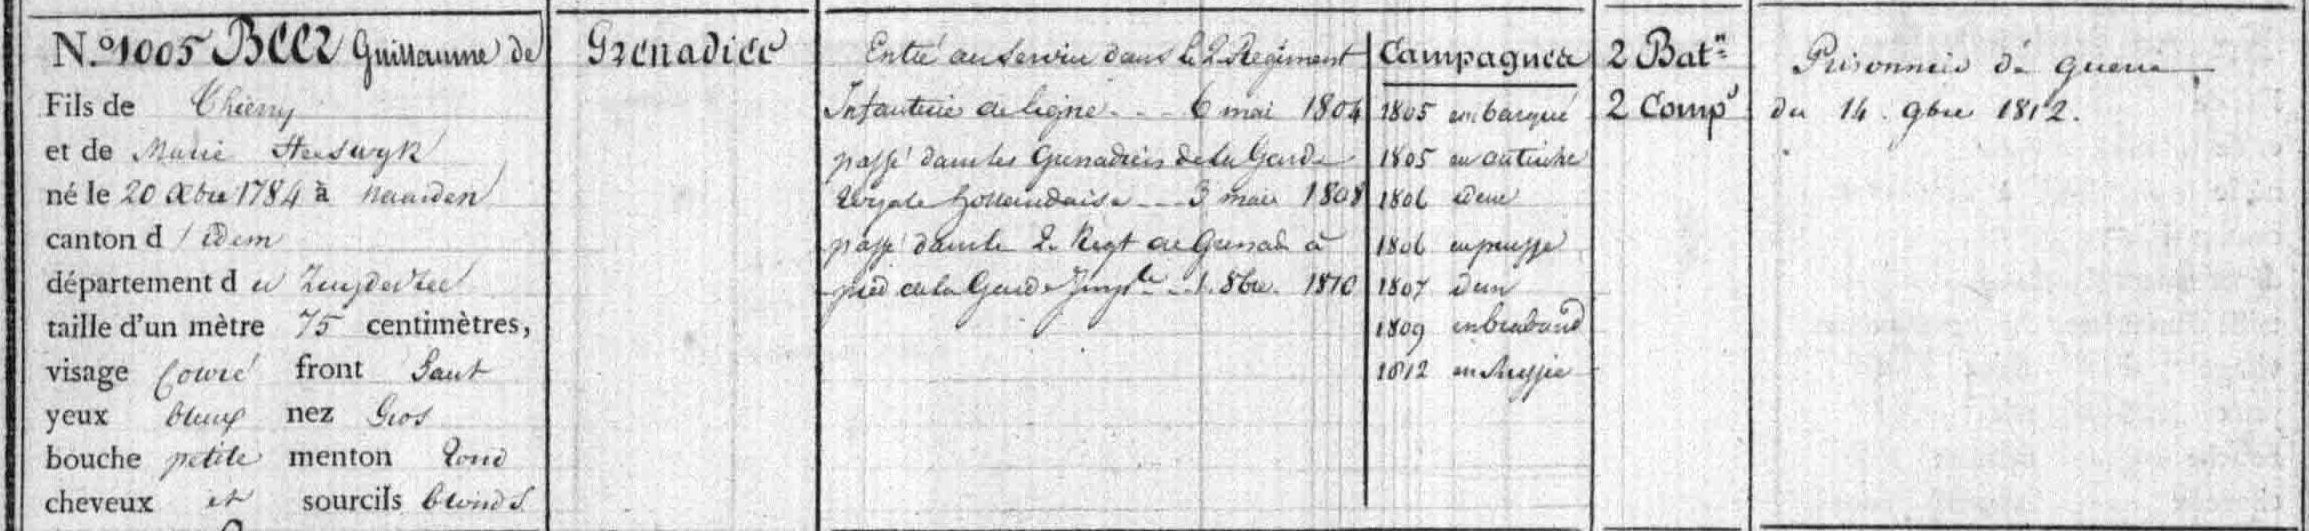 N.º 1005 Beer Guillaume de
Fils de Thierry
et de Marie
né le 20 Xbre 1784 à Naarden
canton d'idem
département du Zuyderzee
taille d'un mètre 75 centimètres,
visage front haut
yeux bleux nez Gros
bouche petite menton rond
cheveux et sourcils blonds
Grenadier
Entré au service dans le 2 Régiment
Infanterie de ligne - - - 6 mai 1804
passé dans les Grenadiers de la Garde
Royale hollandaise - - - 3 mars 1808
passé dans le 2e Regt de Grenad à
pied de la Garde Imple - - 1. 8bre. 1810
Campagnes
1805 embarqué
1805 en autriche
1806 idem
1806 en prusse
1807 idem
1809 en braband
1812 en Russie
2 Batn
2 Comp
Prisonnier de guerre
du 14. 9bre 1812.